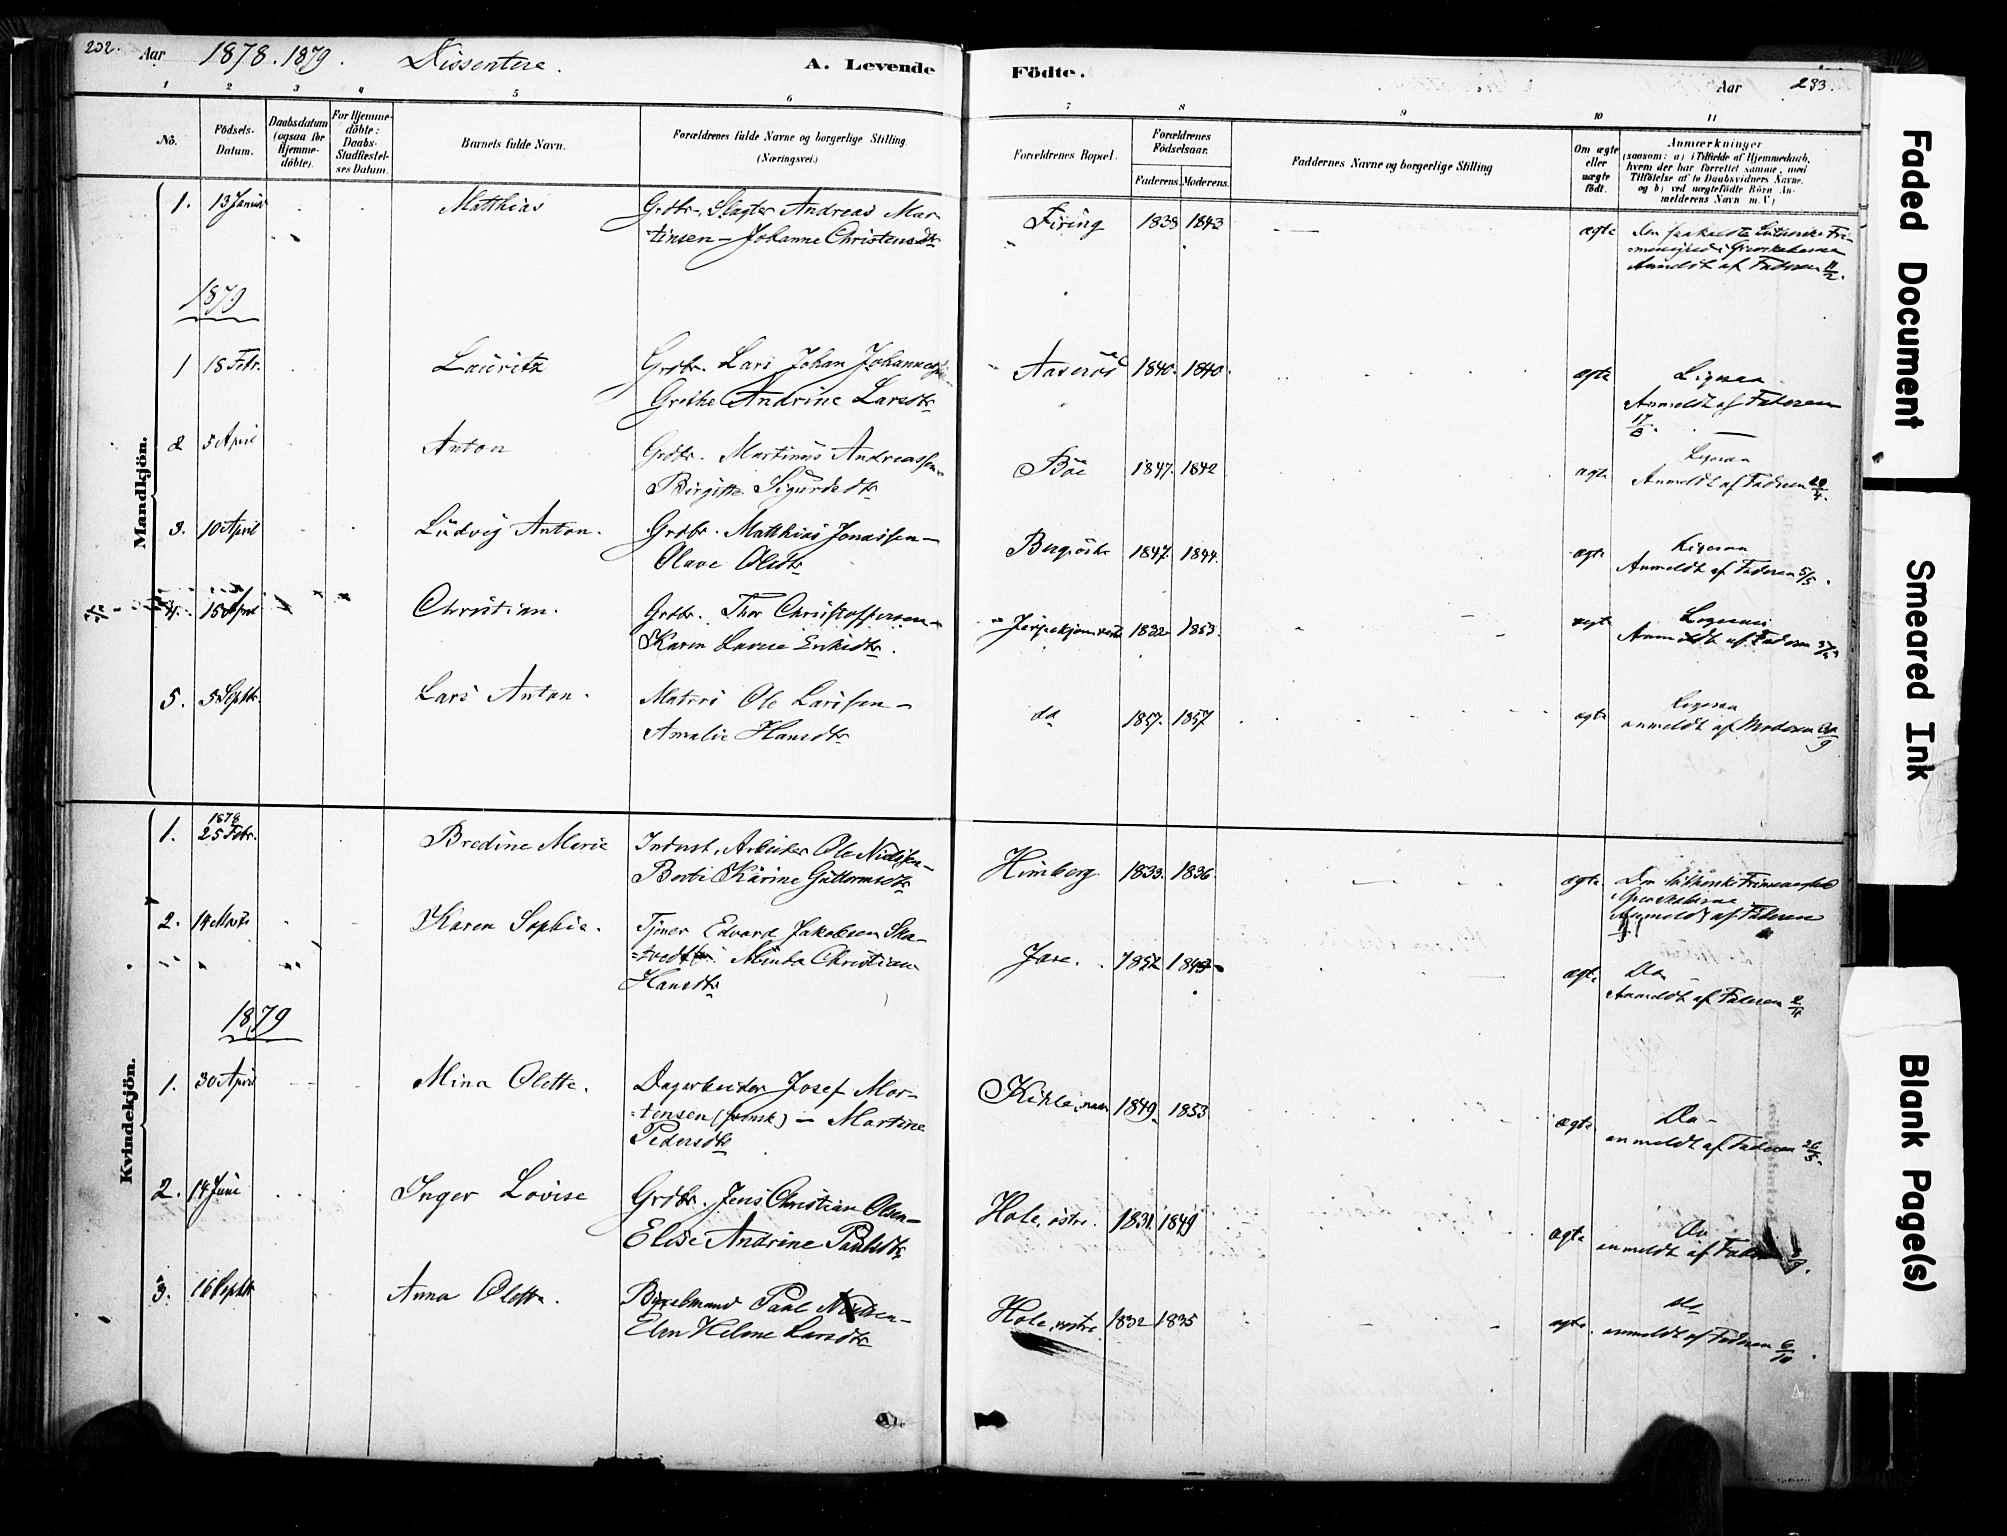 202.
Aar 1878. 1879. Dissentere. A. Levende
1 2 3 4 5 6
No.
Födsels-
Datum.
Daabsdatum
(ogsaa for
Hjemme-
döbte).
For Hjemme-
döbte:
Daabs-
Stadfæstel-
ses Datum.
Barnets fulde Navn.
Forældrenes fulde Navne og borgerlige Stilling
(Næringsvei.)
Födte. Aar 233.
7 8 9 10 11
Forældrenes Bopæl.
Forældrenes
Födselsaar.
Faderens. Moderens.
Faddernes Navne og borgerlige Stilling
Om ægte
eller
uægte
födt.
Anmærkninger
(saasom: a) i Tilfælde af Hjemmedaab,
hvem der har forrettet samme, med
Tilföielse af to Daabsvidners Navne,
og b) ved uægtefödte Börn An-
melderens Navn m. V.)
Mandkjön.
1. 13 Januar Matthias Grdbr. Slagter Andreas Mar-
tinsen – Johanne Christensdtr Firing 1838 1843 ægte den saakaldte Lutherske Fri-
menighed i Grevskaberne
Anmeldt af Faderen 11/2.
1879
1 18 Febr. Lauritz Grdbr. Lars Johan
Grethe Andrine Larsdtr 1840. 1840. ægte Ligesaa
Anmeldt af Faderen
17/3.
2 5 April Anton Grdbr. Martinus Andreassen –
Birgitte Sigurdsdtr Böe 1847. 1842 ægte Ligesaa
Anmeldt af Faderen 20/4.
3. 10 April Ludvig Anton. Grdbr. Matthias Jonassen –
Olave Olsdtr 1847. 1844. ægte Ligesaa
Anmeldt af Faderen 5/5.
4. 15 April Christian. Grdbr. Thor Christoffersen –
Karen Lavise Eriksdtr. 1832 1853. ægte Ligesaa
Anmeldt af Faderen
5. 5 Septbr. Lars Anton. Matros Ole Larssen –
Amalie Hansdtr do 1857. 1857 ægte Ligesaa
anmeldt af Moderen
Kvindekjön.
1878
1. 25 Febr. Bredine Marie Indust. Arbeider Ole Nielsen –
Karine Guttormsdtr Himberg. 1833. 1836. ægte Den Lutherske Frimenighed
i Grevskaberne
Anmeldt af Faderen
2. 14 Marts Karen Sophie. Tjener Edvard Jakobsen
Christian
Hansdtr 1852 ægte Do
Anmeldt af Faderen 2/4
1879
1. 30 April Mina Olette. Dagarbeider Josef Mor-
tensen (finsk) – Martine
Pedersdtr 1849. 1853 ægte Do
anmeldt af Faderen 26/5.
2. 14 Juni Inger Lovise Grdbr. Jens Christian Olsen –
Elise Andrine Paulsdtr Hole, östre. 1831. 1849 ægte Do
anmeldt af Faderen
3. 16 Septbr Anna Olette. Paul Nielsen –
Elen Helene Larsdtr Hole, vestre 1832 1835 ægte. do
anmeldt af Faderen 6/10.
Faded Document
Smeared Ink
Blank Page(s)